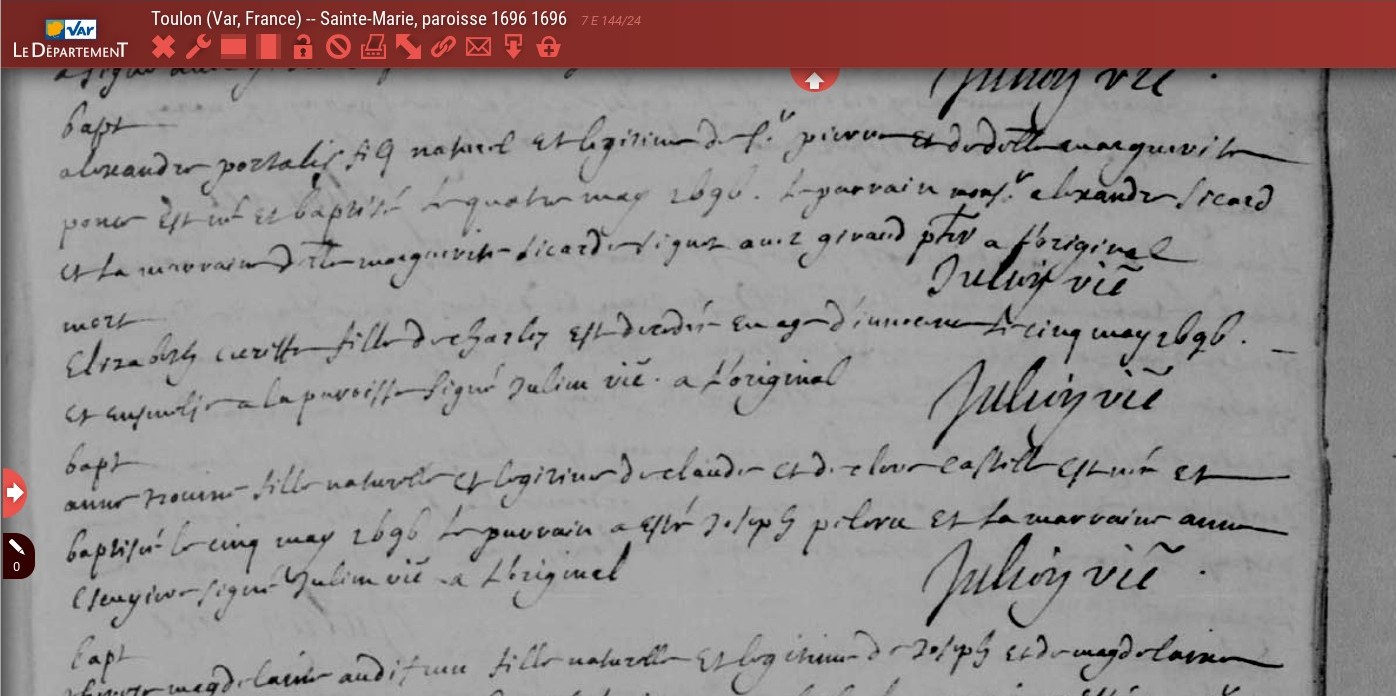 Toulon (Var, France) -- Sainte-Marie, paroisse 1696 1696 7 E 144/24
VAR
LE DÉPARTEMENT
bapt
alexandre portalis fils naturel et legitime de sr pierre et de dlle marguerite
est né et baptisé le quatre may 1696. le parrain monsr alexandre sicard
et la marraine dlle marguerite sicard signez avec giraud ptre a l'original
Julien vic
mort
Elizabeth fille de charles est decedée en age d'innocence le cinq may 1696.
et ensevelie a la paroisse signé Julien vic. a l'original
Julien vic
bapt
anne fille naturelle et legitime de claude et de claire castelle est née et
baptisé le cinq may 1696 le parrain a esté Joseph et la marraine anne
signé Julien vic a l'original
Julien vic
bapt
magdelaine fille naturelle et legitime de Joseph et de magdelaine
0